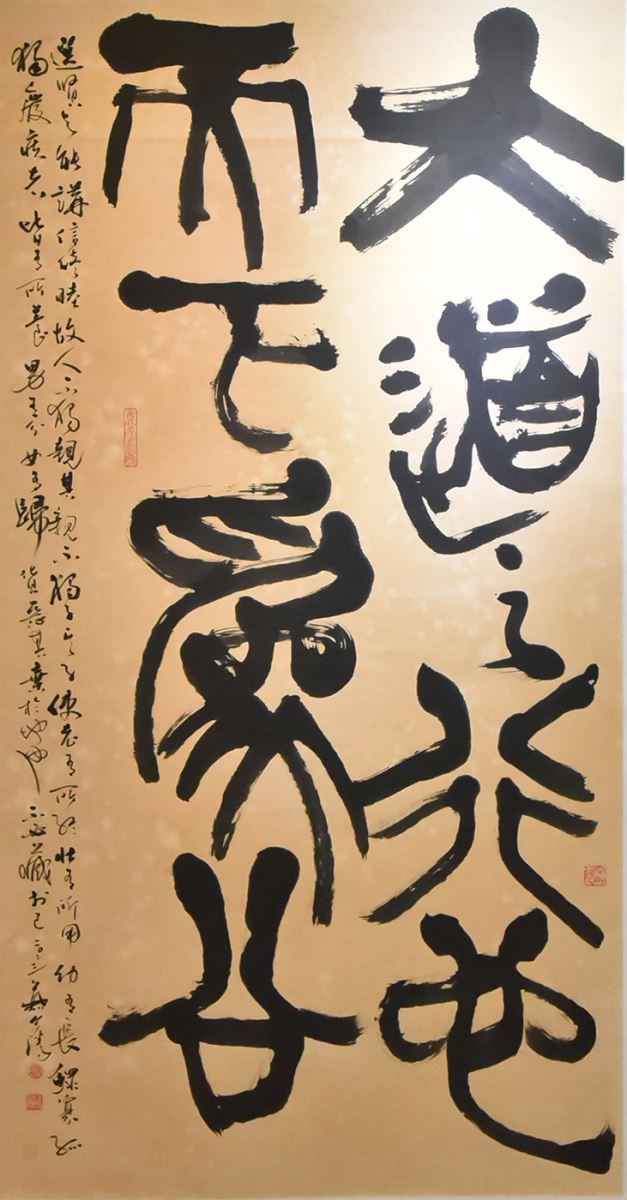 大道之行也
天下為公
選賢与能講信修睦故人不獨親其親不獨子其子使老有所終壯有所用幼有長鰥寡孤
獨廢疾者皆有所養男有分女有歸貨惡其棄於地也不必藏於己